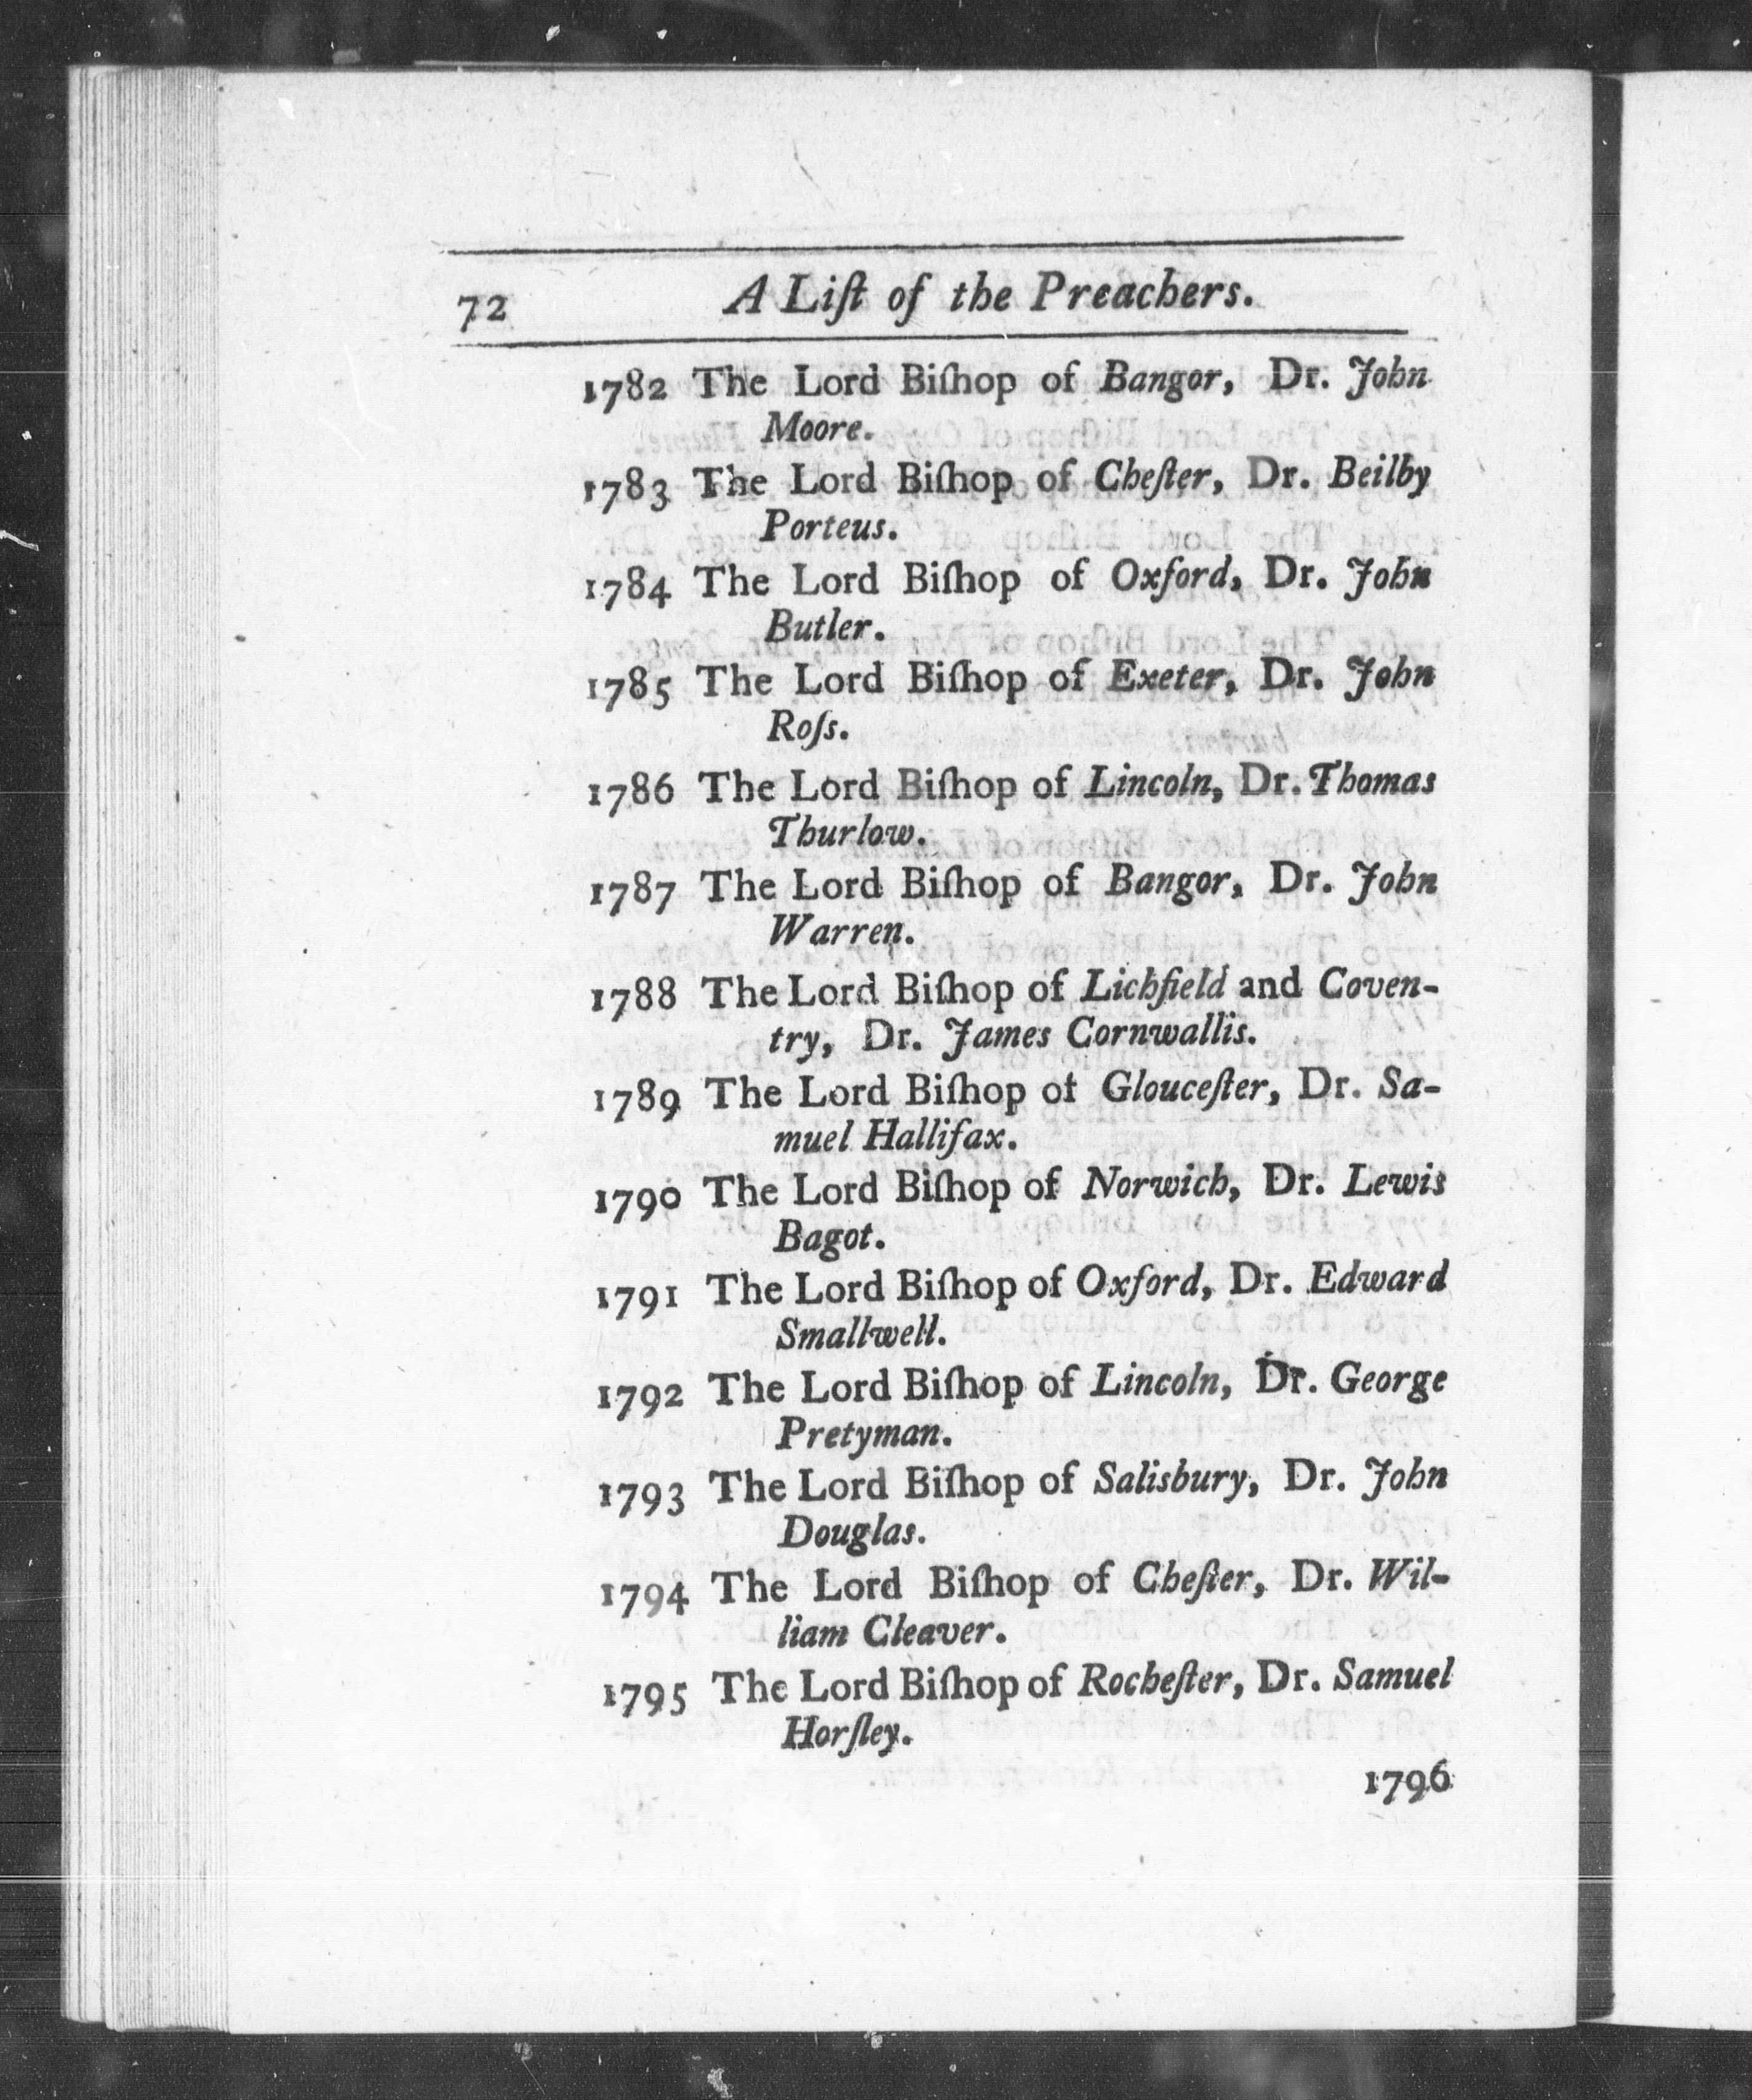 72 A Liſt of the Preachers.
1782 The Lord Biſhop of Bangor, Dr. John
Moore.
1783 The Lord Biſhop of Cheſter, Dr. Beilby
Porteus.
1784 The Lord Biſhop of Oxford, Dr. John
Butler.
1785 The Lord Biſhop of Exeter, Dr. John
Roſs.
1786 The Lord Biſhop of Lincoln, Dr. Thomas
Thurlow.
1787 The Lord Biſhop of Bangor, Dr. John
Warren.
1788 The Lord Biſhop of Lichfield and Coven-
try, Dr. James Cornwallis.
1789 The Lord Biſhop of Glouceſter, Dr. Sa-
muel Hallifax.
1790 The Lord Biſhop of Norwich, Dr. Lewis
Bagot.
1791 The Lord Biſhop of Oxford, Dr. Edward
Smallwell.
1792 The Lord Biſhop of Lincoln, Dr. George
Pretyman.
1793 The Lord Biſhop of Salisbury, Dr. John
Douglas.
1794 The Lord Biſhop of Cheſter, Dr. Wil-
liam Cleaver.
1795 The Lord Biſhop of Rocheſter, Dr. Samuel
Horſley.
1796